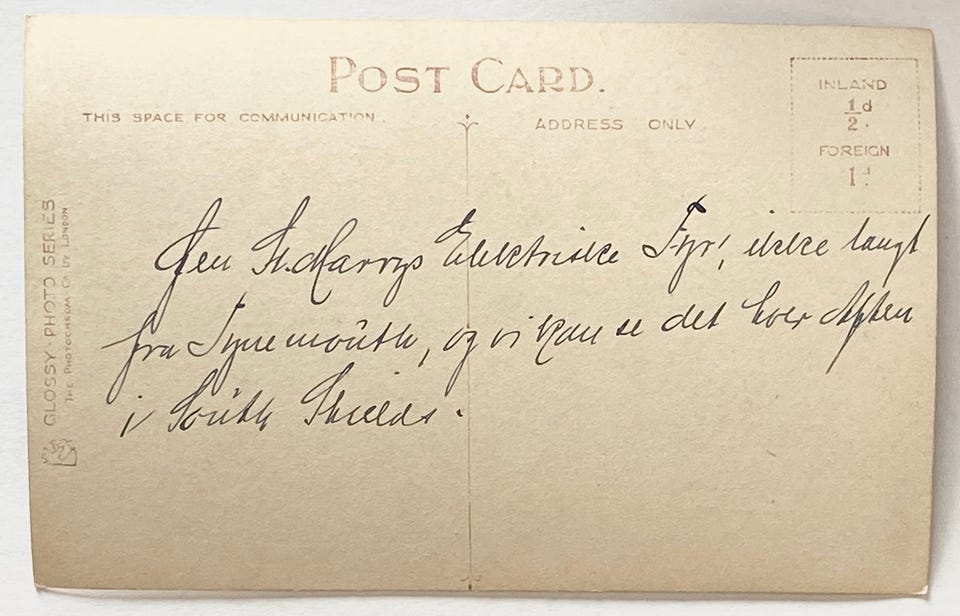 POST CARD.
THIS SPACE FOR COMMUNICATION.
ADDRESS ONLY
INLAND
½d.
FOREIGN
1d.
GLOSSY · PHOTO SERIES
THE PHOTOCHROM Co LTD LONDON
St. Marrys Elektriske Fyr, ikke langt
fra Tynemouth, og vi kan se det hver Aften
i South Shields.